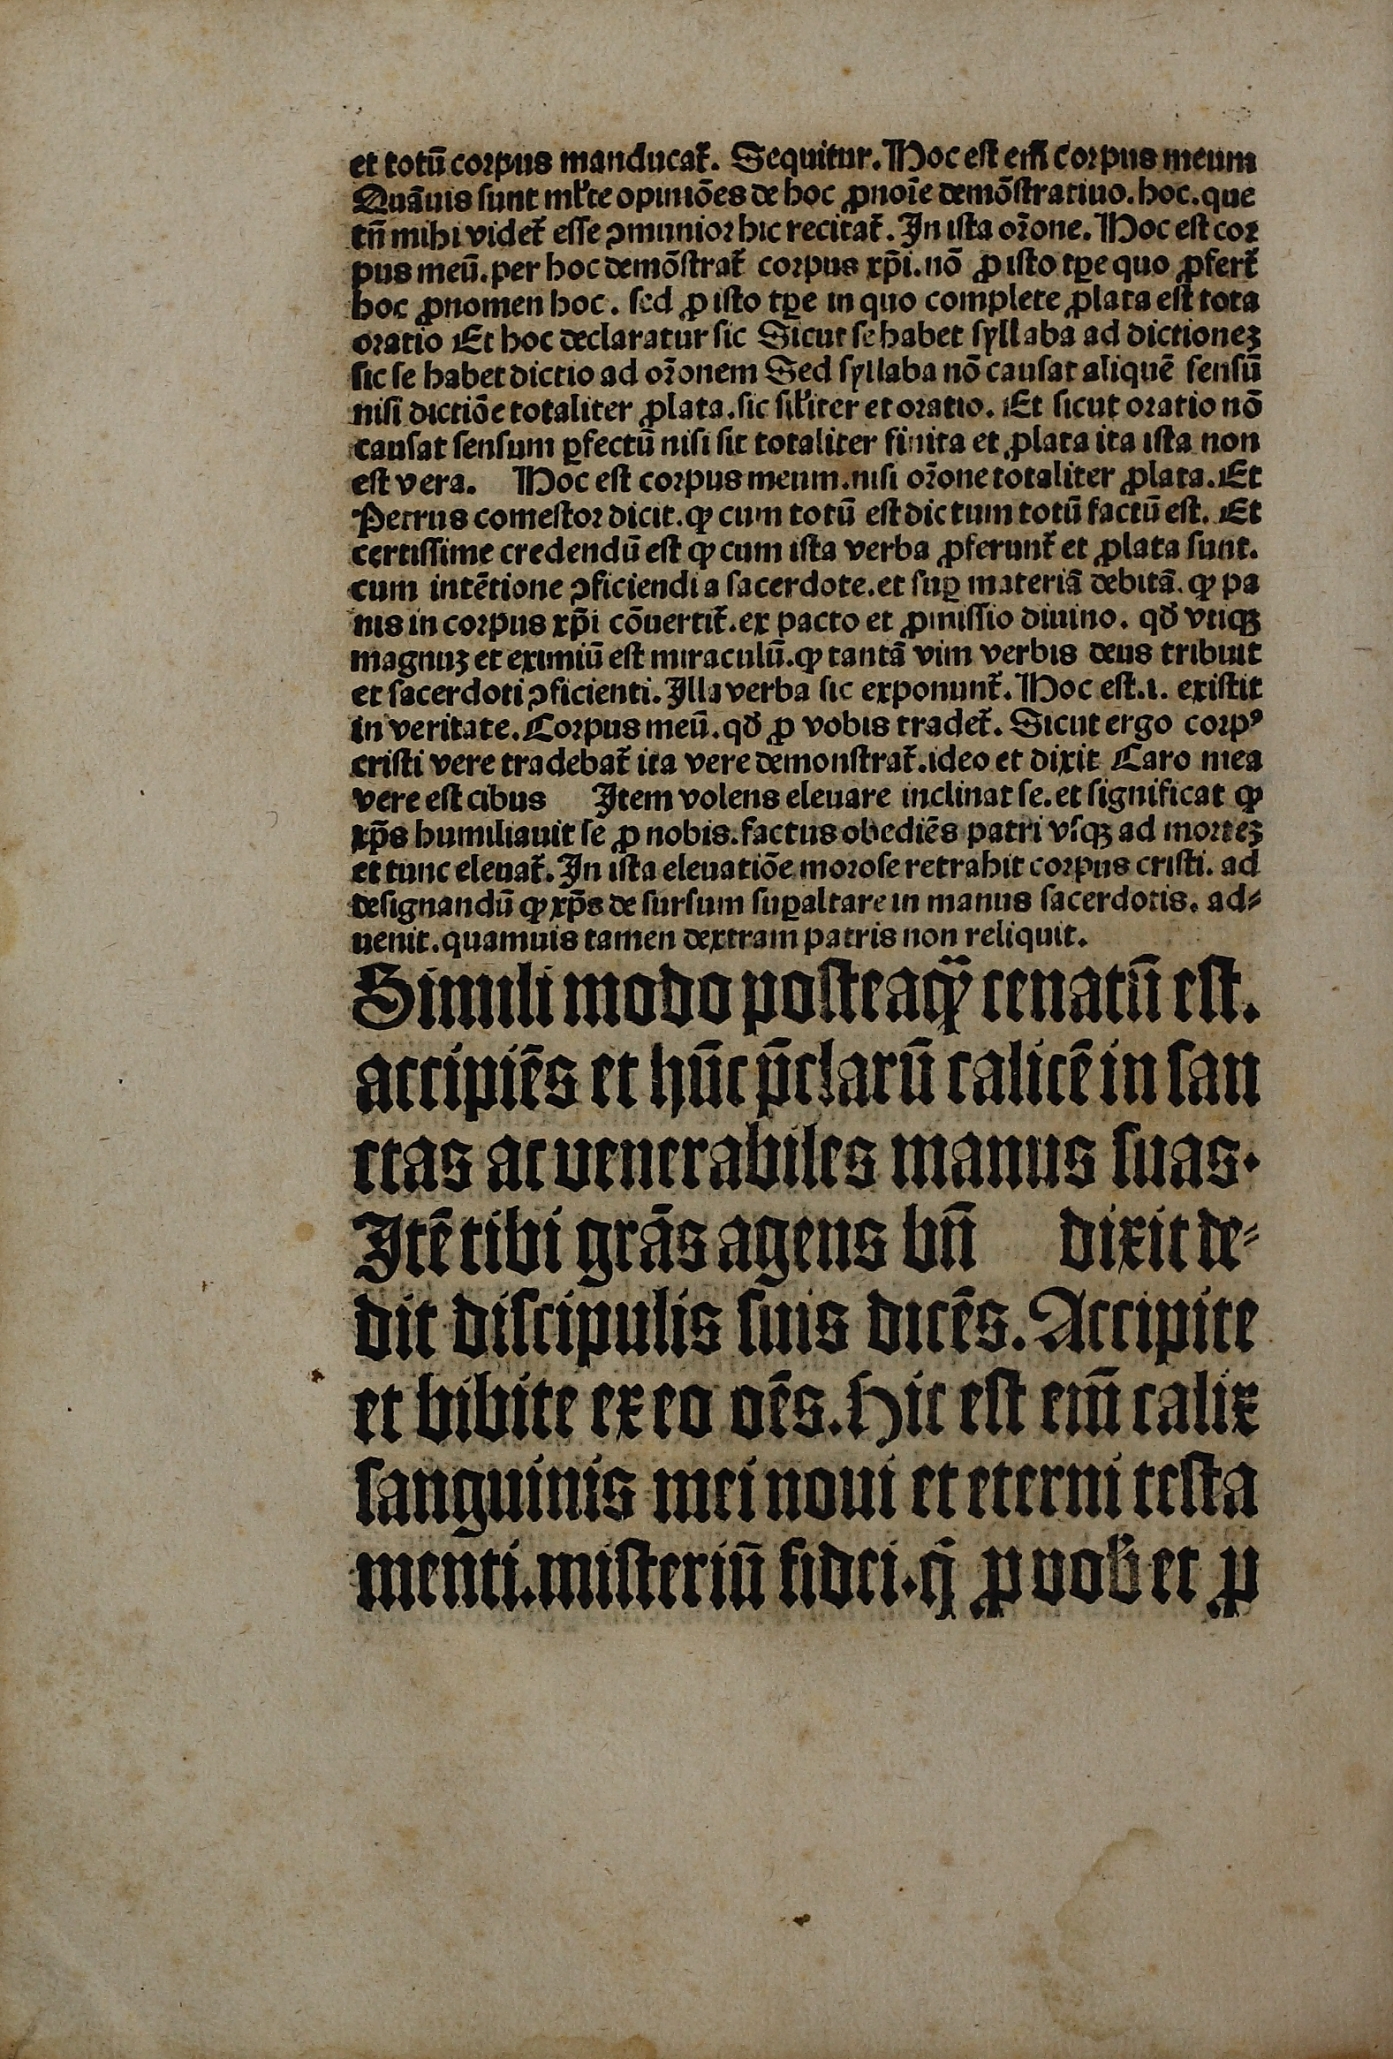 et totū corpus manducat᷑. Sequitur. Hoc est em̄ Corpus meum
Quāuis sunt ml̄te opiniōes de hoc ꝓnoīe demōstratiuo. hoc. que
tn̄ mihi videt᷑ esse ꝯmunior hic recitat᷑. In ista or̄one. Hoc est cor
pus meū. per hoc demōstrat᷑ corpus xp̄i. nō ꝓ isto tꝑe quo ꝓfert᷑
hoc ꝓnomen hoc. sed ꝓ isto tꝑe in quo complete ꝓlata est tota
oratio Et hoc declaratur sic Sicut se habet syllaba ad dictioneꝫ
sic se habet dictio ad or̄onem Sed syllaba nō causat aliquē sensū
nisi dictiōe totaliter ꝓlata. sic sil̄iter et oratio. Et sicut oratio nō
causat sensum ꝑfectū nisi sit totaliter finita et ꝓlata ita ista non
est vera. Hoc est corpus meum. nisi or̄one totaliter ꝓlata. Et
Petrus comestor dicit. ꝙ cum totū est dictum totū factū est. Et
certissime credendū est ꝙ cum ista verba ꝓferunt᷑ et ꝓlata sunt.
cum intētione ꝯficiendi a sacerdote. et suꝑ materiā debitā. ꝙ pa
nis in corpus xp̄i cōuertit᷑. ex pacto et ꝓmissio diuino. qd̄ vtiqꝫ
magnuꝫ et eximiū est miraculū. ꝙ tantā vim verbis deus tribuit
et sacerdoti ꝯficienti. Illa verba sic exponunt᷑. Hoc est. i. existit
in veritate. Corpus meū. qd̄ ꝓ vobis tradet᷑. Sicut ergo corpꝰ
cristi vere tradebat᷑ ita vere demonstrat᷑. ideo et dixit Caro mea
vere est cibus Item volens eleuare inclinat se. et significat ꝙ
xp̄s humiliauit se ꝓ nobis. factus obediēs patri vsqꝫ ad morteꝫ
et tunc eleuat᷑. In ista eleuatiōe morose retrahit corpus cristi. ad
designandū ꝙ xp̄s de sursum suꝑaltare in manus sacerdotis. ad⸗
uenit. quamuis tamen dextram patris non reliquit.
Simili modo posteaꝙ̄ cenatū est.
accipiēs et hūc p̄clarū calicē in san
ctas ac venerabiles manus suas.
Itē tibi grās agens bn̄ dixit de⸗
dit discipulis suis dicēs. Accipite
et bibite ex eo oēs. Hic est em̄ calix
sanguinis mei noui et eterni testa
menti. misteriū fidei. q̄ ꝓ vob̄ et ꝓ